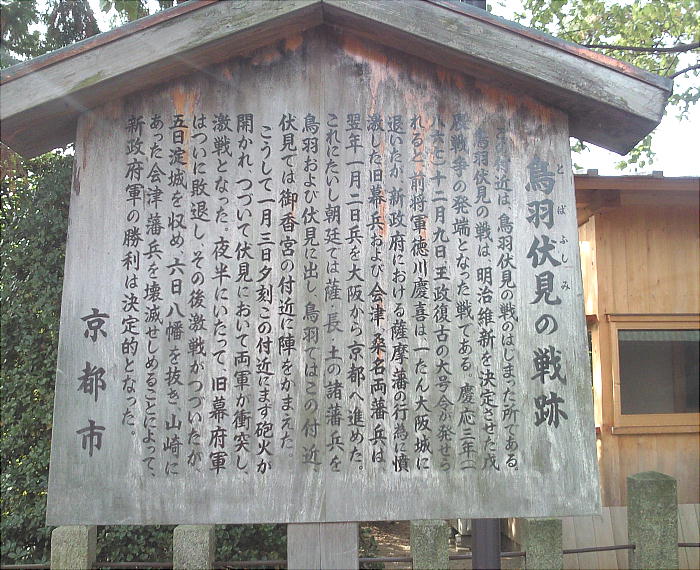 鳥羽伏見の戦跡
とばふしみ
この付近は、鳥羽伏見の戦のはじまった所である。
鳥羽伏見の戦は、明治維新を決定させた戊
辰戦争の発端となった戦である。慶応三年(一
八六七)十二月九日王政復古の大号令が発せら
れると、前将軍徳川慶喜は、一たん大阪城に
退いたが、新政府における薩摩藩の行為に憤
激した旧幕兵および会津、桑名両藩兵は、
翌年一月二日兵を大阪から京都へ進めた。
これにたいし朝廷では薩・長・土の諸藩兵を
鳥羽および伏見に出し、鳥羽ではこの付近
伏見では御香宮の付近に陣をかまえた。
こうして一月三日夕刻この付近にまず砲火が
開かれ、つづいて伏見において両軍が衝突し、
激戦となった。夜半にいたって、旧幕府軍
はついに敗退し、その後激戦がつづいたが、
五日淀城を収め、六日八幡を抜き、山崎に
あった会津藩兵を壊滅せしめることによって、
新政府軍の勝利は決定的となった。
京都市